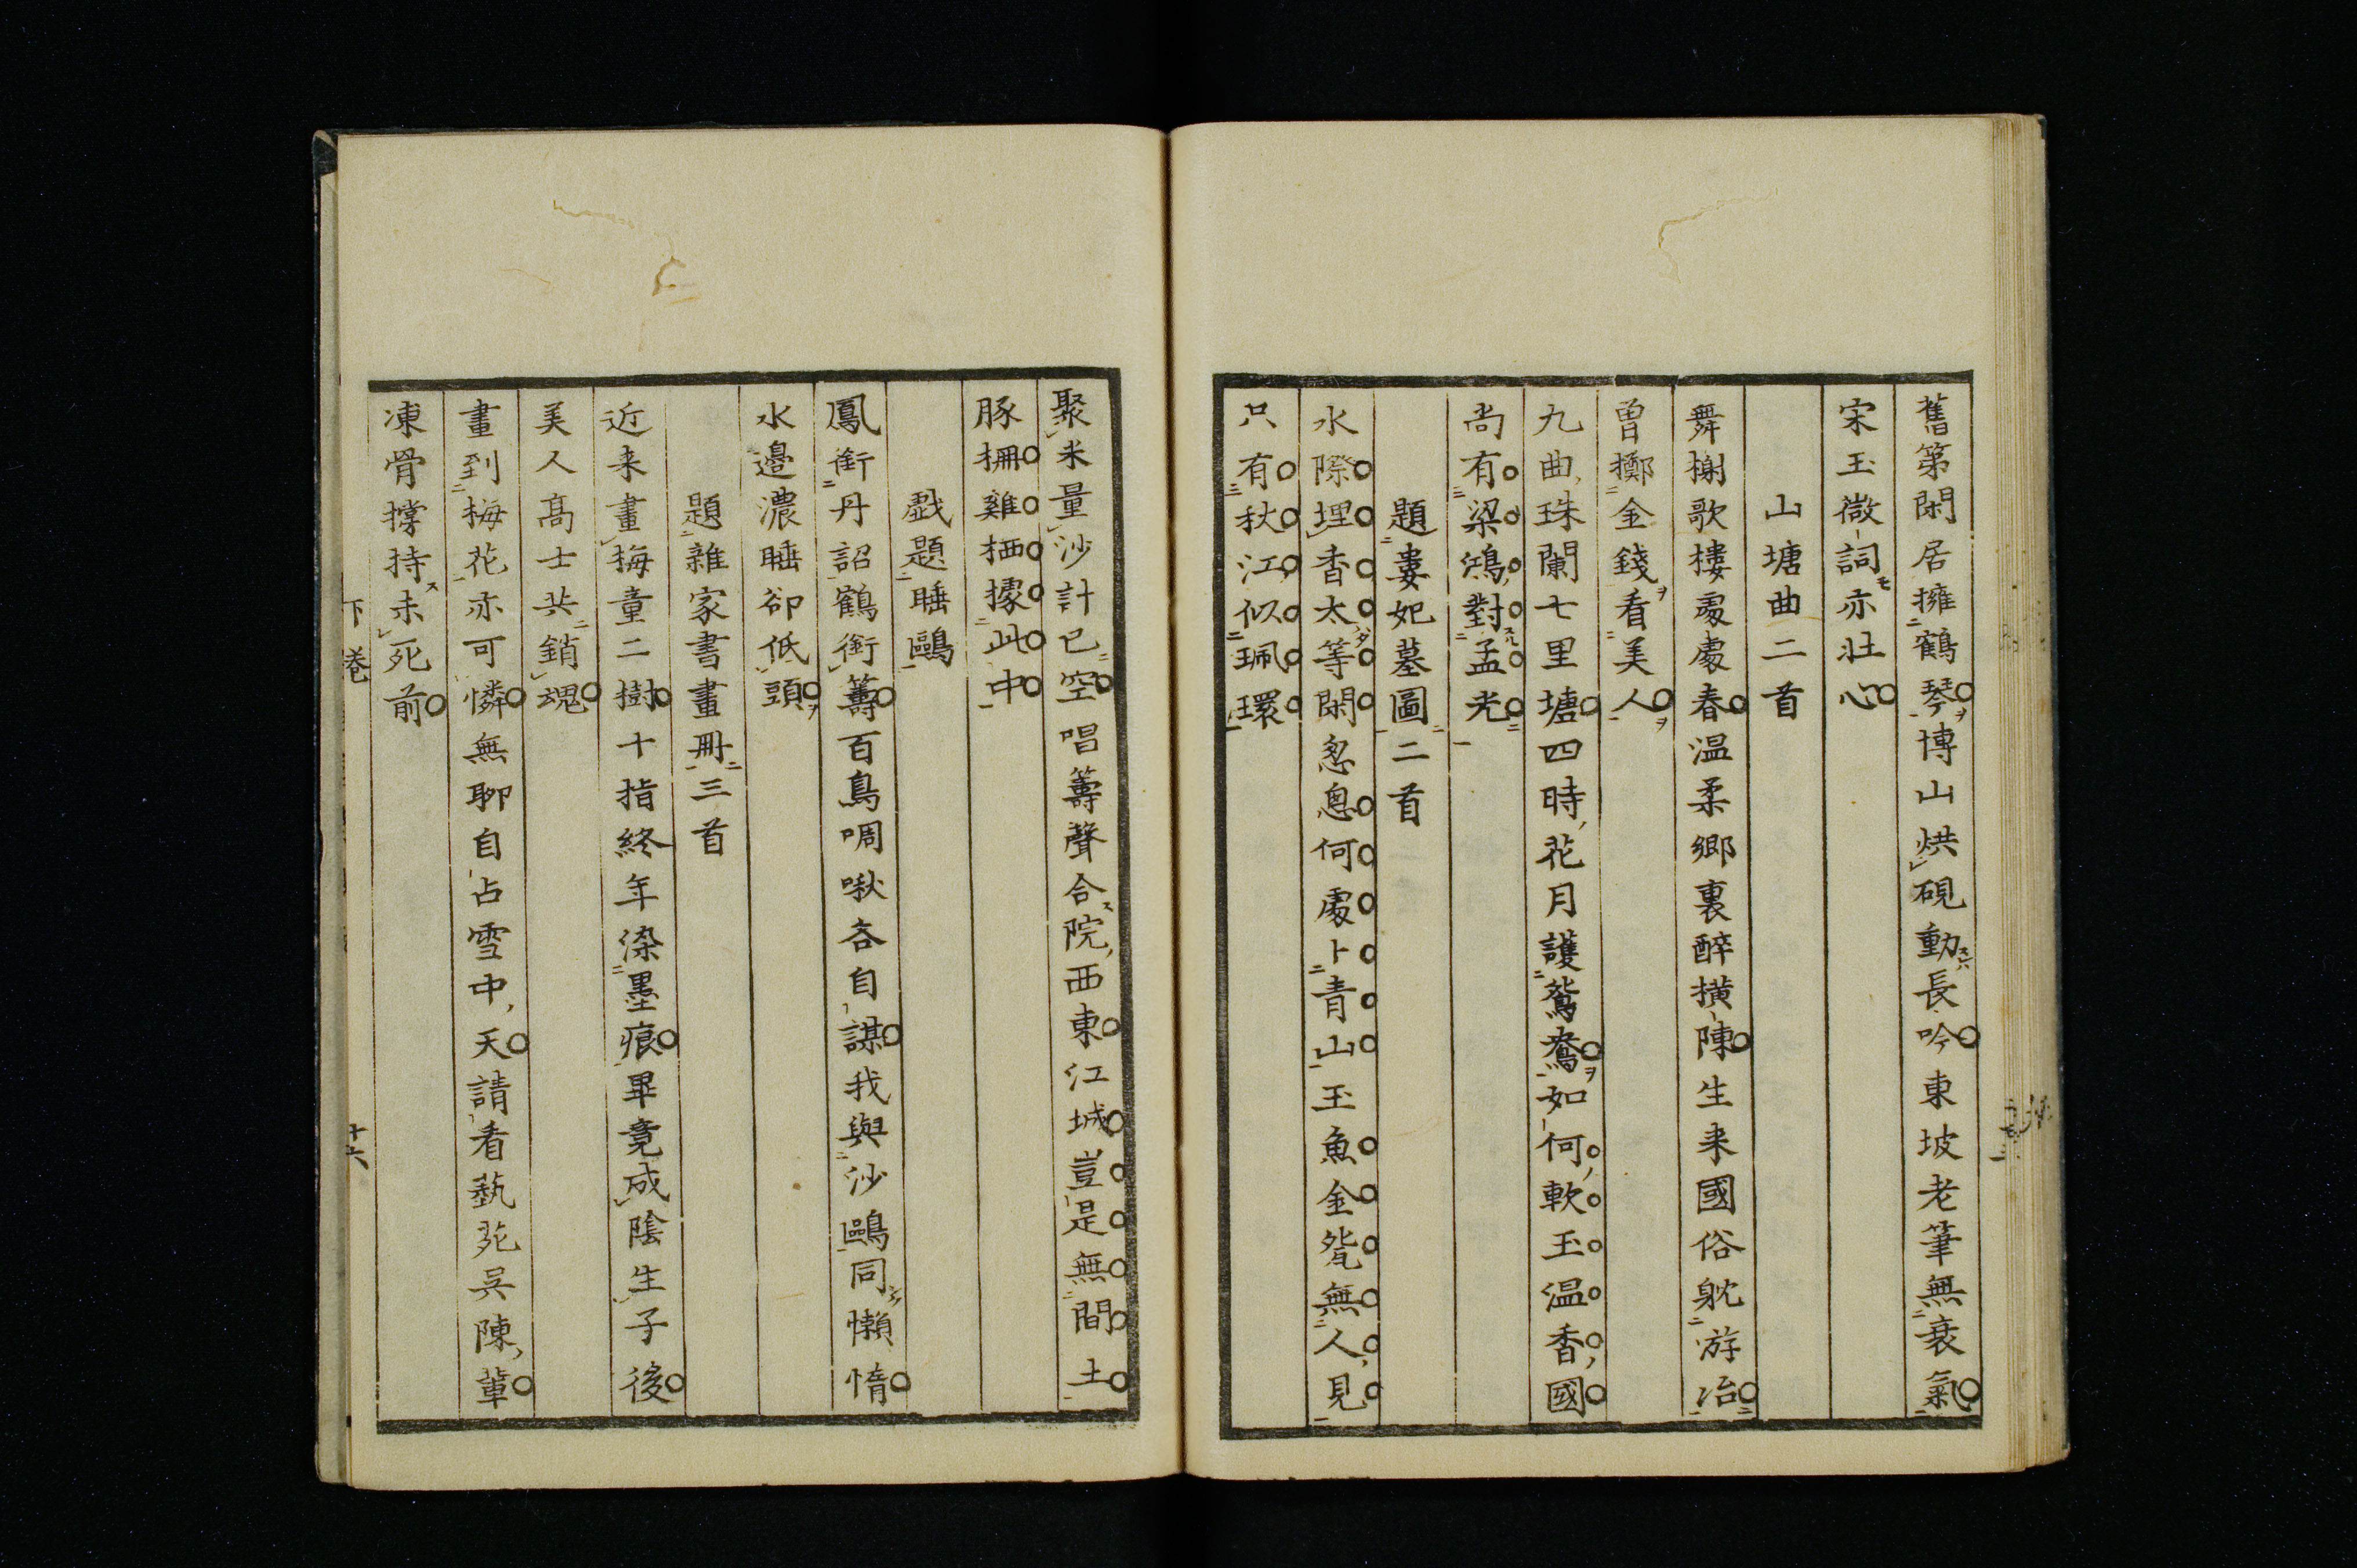 舊第閑居擁鶴琴博山烘硯動長吟東坡老筆無衰氣
宋玉微詞亦壯心
山塘曲二首
舞榭歌樓處處春温柔鄉裏醉橫陳生来國俗躭游冶
曾擲金錢看美人
九曲珠闌七里塘四時花月護鴛鴦如何軟玉温香國
尚有梁鴻對孟光
題婁妃墓圖二首
水際埋香太等閑怱怱何處卜青山玉魚金盌無人見
只有秋江似珮環
聚米量沙計已空唱籌聲合院西東江城豈是無間土
豚柵雞栖據此中
戲題睡鷗
鳳銜丹詔鶴銜籌百鳥啁啾各自謀我與沙鷗同懶惰
水邊濃睡卻低頭
題雜家書畫冊三首
近来畫梅童二樹十指終年染墨痕畢竟成陰生子後
美人高士共銷魂
畫到梅花亦可憐無聊自占雪中天請看藝苑吳陳輩
凍骨撐持未死前
下巻
十六